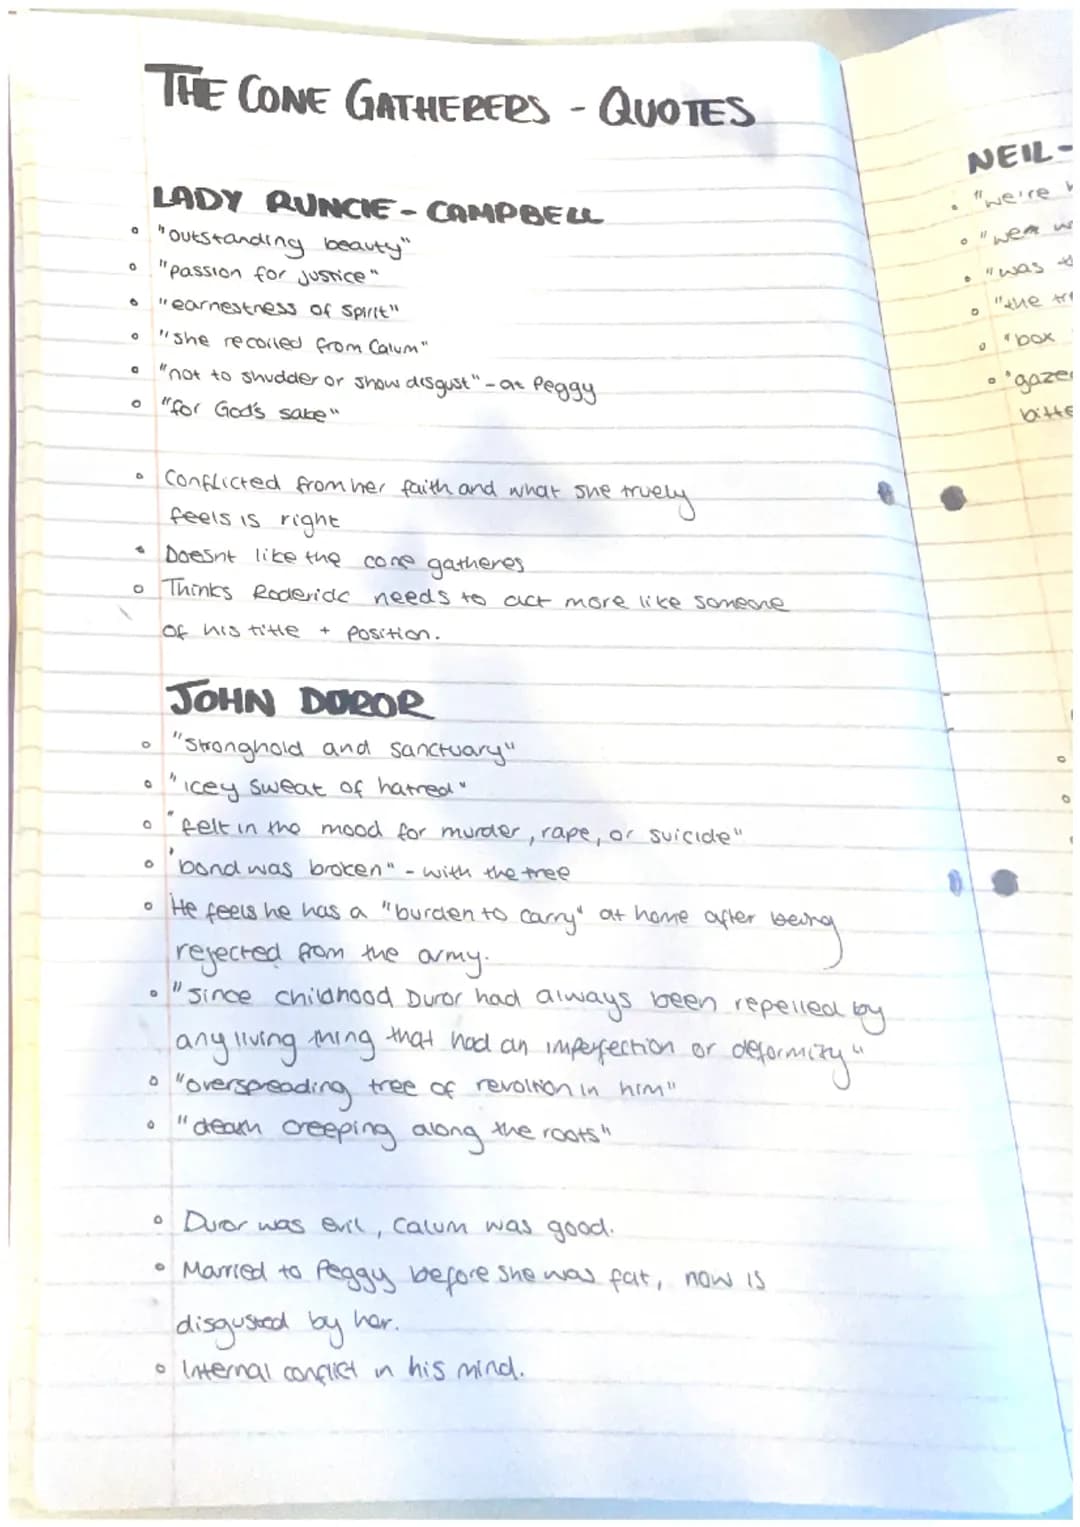 THE CONE GATHERERS - QUOTES
LADY RUNCIE - CAMPBELL
"outstanding beauty"
"passion for justice"
"earnestness of spirit"
"she recoiled from Calum"
"not to shudder or show disgust" - at Peggy
"for God's sake"
Conflicted from her faith and what she truely
feels is right
Doesnt like the cone gatheres
Thinks Roderick needs to act more like someone
of his title + position.
JOHN DUROR
"stronghold and sanctuary"
"icey sweat of hatred"
"felt in the mood for murder, rape, or suicide"
"bond was broken" - with the tree
He feels he has a "burden to carry" at home after being
rejected from the army.
"since childhood Duror had always been repelled by
any living thing that had an imperfection or deformity"
"overspreading tree of revoltion in him"
"death creeping along the roots"
Duror was evil, Calum was good.
Married to Peggy before she was fat, now is
disgusted by her.
Internal conflict in his mind.
NEIL -
"we're
"were
"was
"the
"box
"gaze
bitte